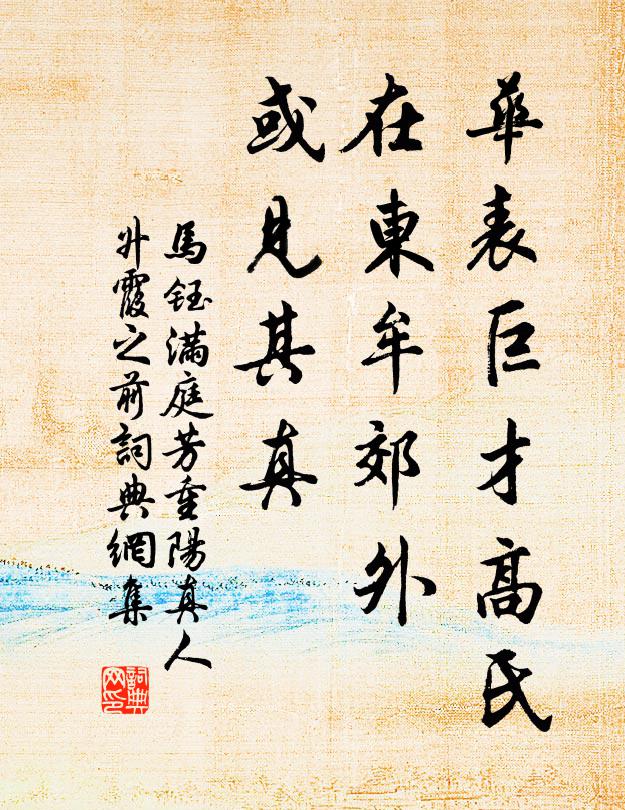 華表巨才高氏
在東牟郊外
或見其真
馬鈺滿庭芳重陽真人
升霞之前詞典網集
詞典
网印